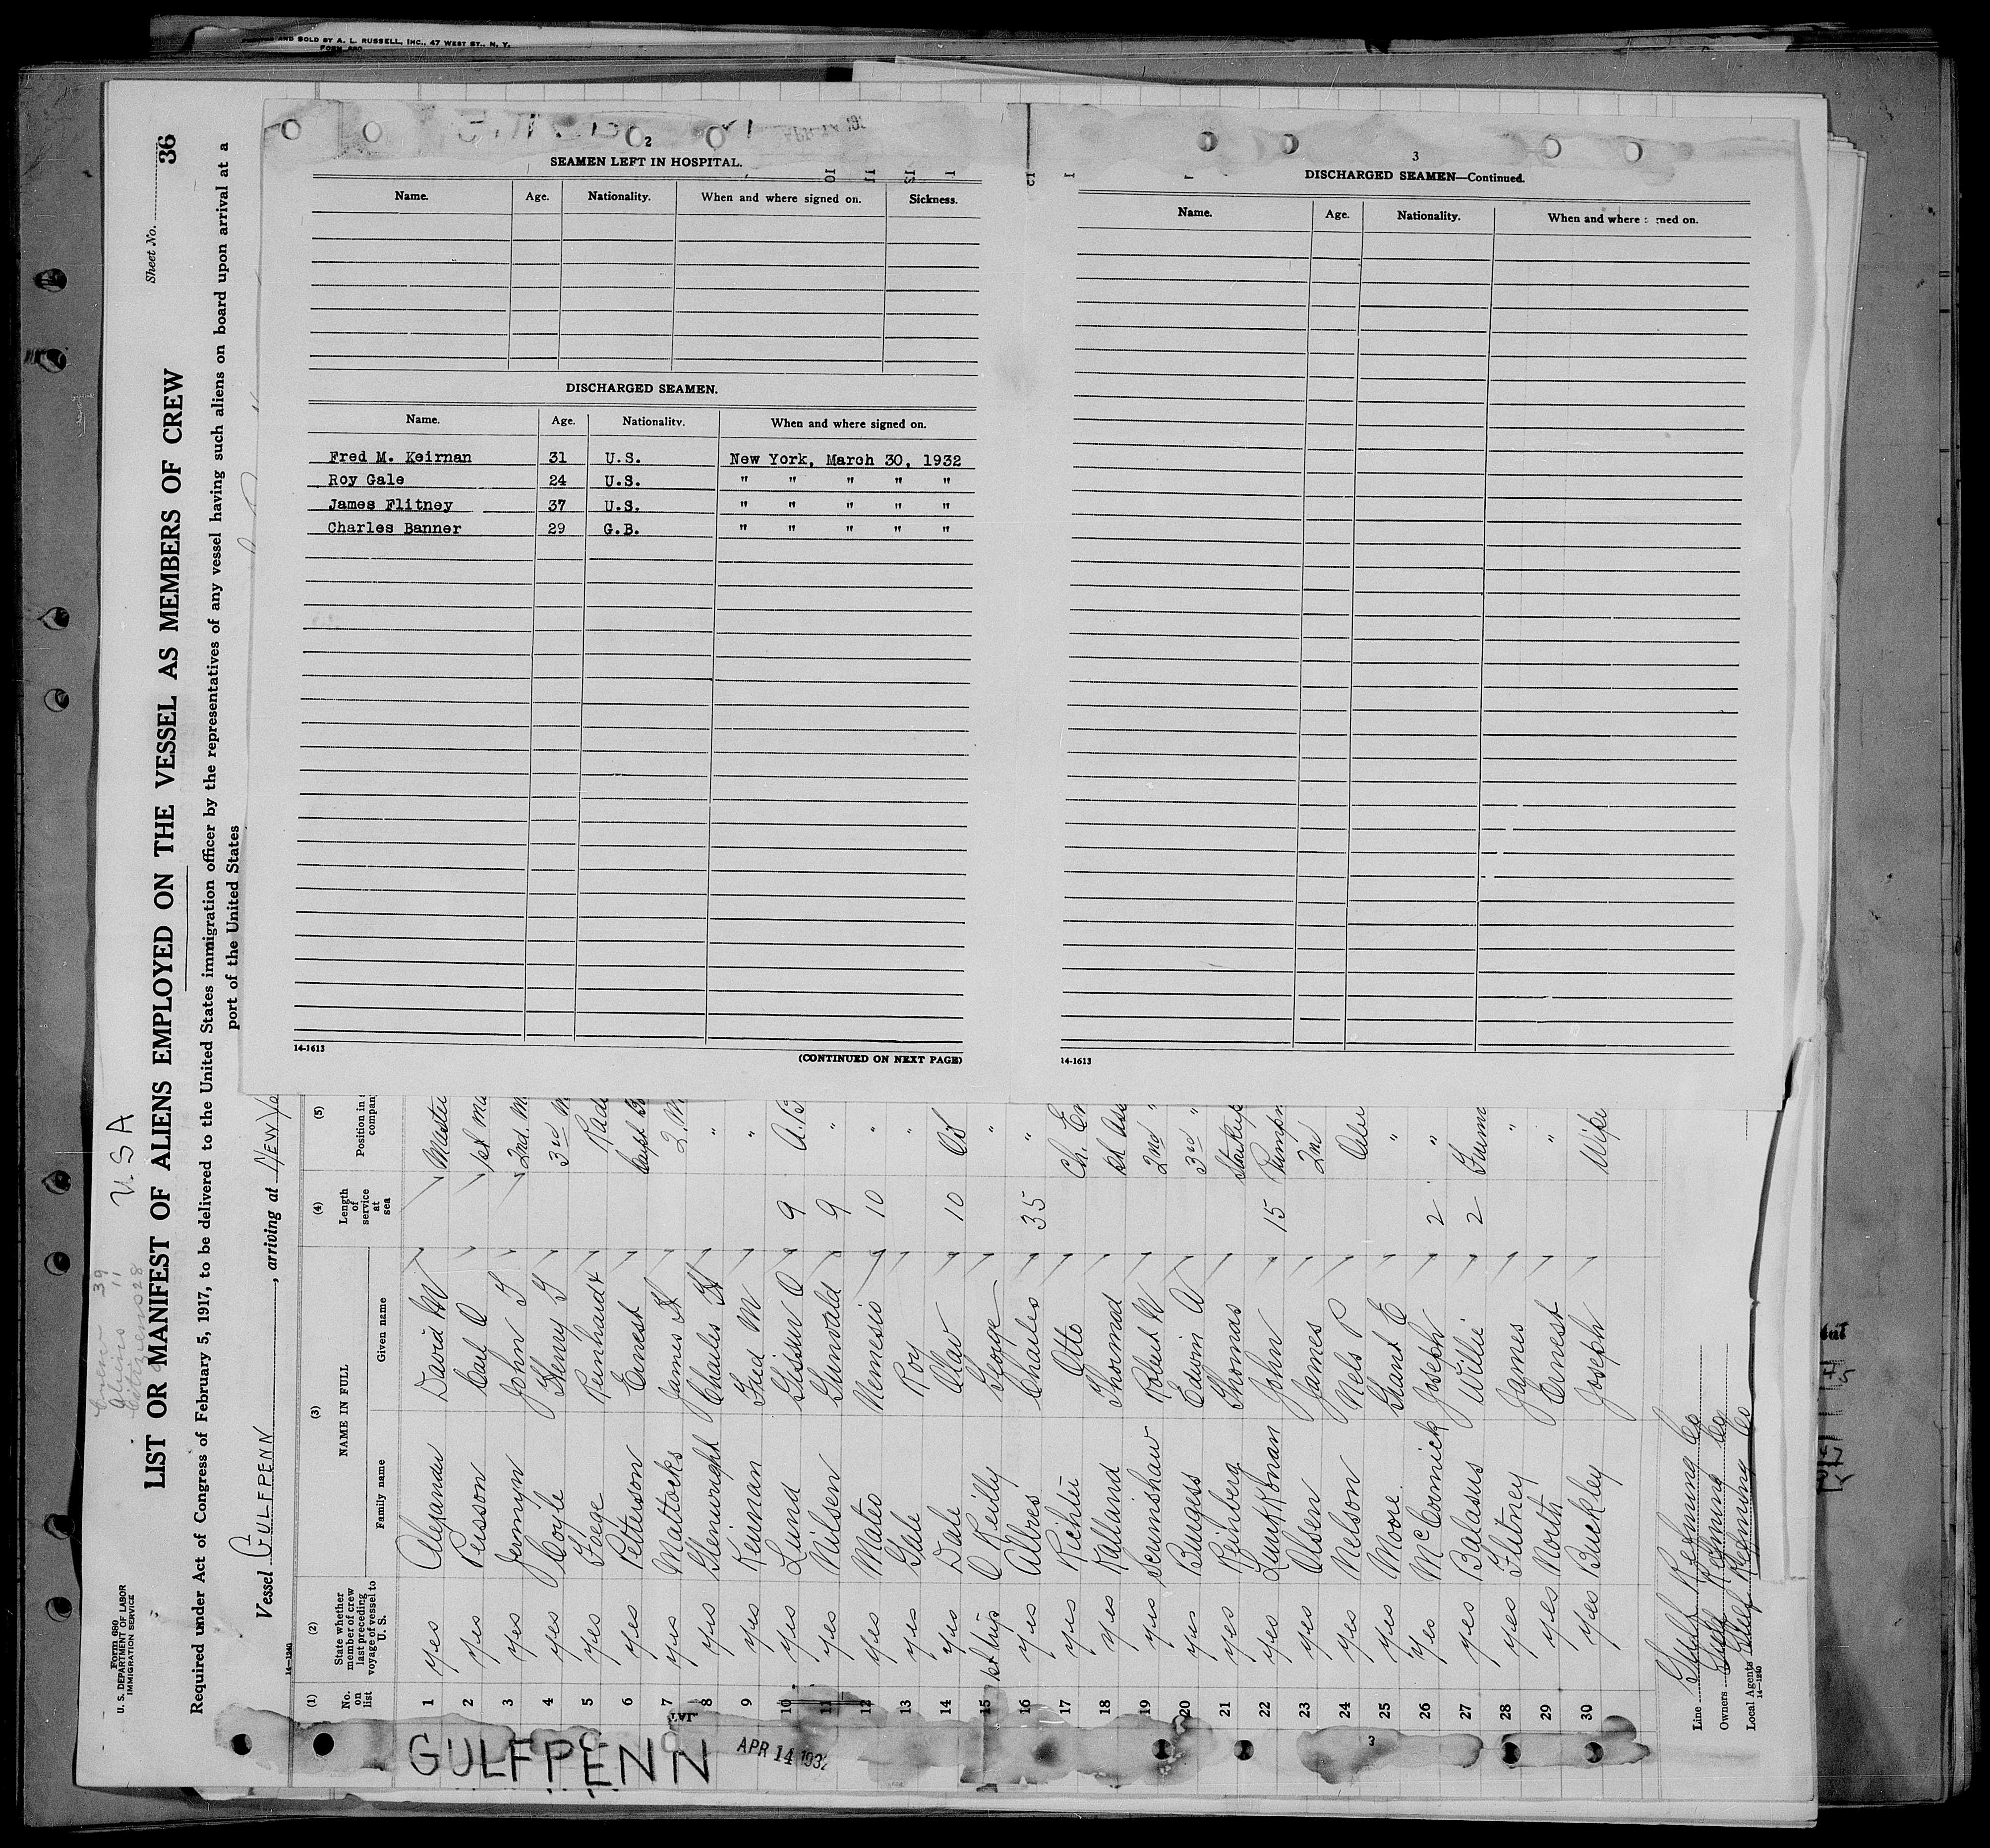 PRINTED AND SOLD BY A. L. RUSSELL, INC., 47 WEST ST., N. Y.
FORM 680
2
SEAMEN LEFT IN HOSPITAL.
Name. Age. Nationality. When and where signed on. Sickness.
DISCHARGED SEAMEN.
Name. Age. Nationality. When and where signed on.
Fred M. Keirnan 31 U.S. New York, March 30, 1932
Roy Gale 24 U.S. " " " " "
James Flitney 37 U.S. " " " " "
Charles Banner 29 G.B. " " " " "
14-1613
(CONTINUED ON NEXT PAGE)
3
DISCHARGED SEAMEN—Continued.
Name. Age. Nationality. When and where signed on.
14-1613
Form 680
U. S. DEPARTMENT OF LABOR
IMMIGRATION SERVICE
Crew 39
Aliens 11
Citizens 28
U.S.A
Sheet No. 36
LIST OR MANIFEST OF ALIENS EMPLOYED ON THE VESSEL AS MEMBERS OF CREW
Required under Act of Congress of February 5, 1917, to be delivered to the United States immigration officer by the representatives of any vessel having such aliens on board upon arrival at a
port of the United States
Vessel GULFPENN, arriving at NEW Yo
14-1240
(1) (2) (3) (4) (5)
No. on list
State whether member of crew last preceding voyage of vessel to U. S.
NAME IN FULL
Family name Given name
Length of service at sea
Position in company
1 yes Alexander David M Master
2 yes Persson Carl O 1st Ma
3 yes Jermyn John T 2nd. M
4 yes Coyle Henry T 3rd M
5 yes Feege Reinhardt Rad
6 yes Petterson Ernest
7 yes Mattocks James H 2. M
8 yes Glenwright Charles H "
9 yes Keirnan Fred M "
10 yes Lund Gissur O 9 A.B
11 yes Nielsen Gunvald 9 "
12 yes Mateo Nemesio 10 "
13 yes Gale Roy "
14 yes Dale Olav 10 OS
15 1st trip O Reilly George "
16 yes Albres Charles 35 "
17 yes Richter Otto Ch. En
18 yes Kalland Thormod 1st Ass
19 yes Scrimshaw Robert W 2nd "
20 yes Burgess Edwin A 3rd "
21 yes Reinberg Thomas
22 yes John 15 Pumpm
23 yes Olsen James 2nd
24 yes Nelson Nels P Oiler
25 yes Moore Grant E "
26 yes McCormick Joseph 2 "
27 yes Balasus Willie 2
28 yes Flitney James "
29 yes North Ernest "
30 yes Buckley Joseph Wipe
Line Gulf Refining Co
Owners Gulf Refining Co
Local Agents Gulf Refining Co
14-1240
GULFPENN
APR 14 1932
3